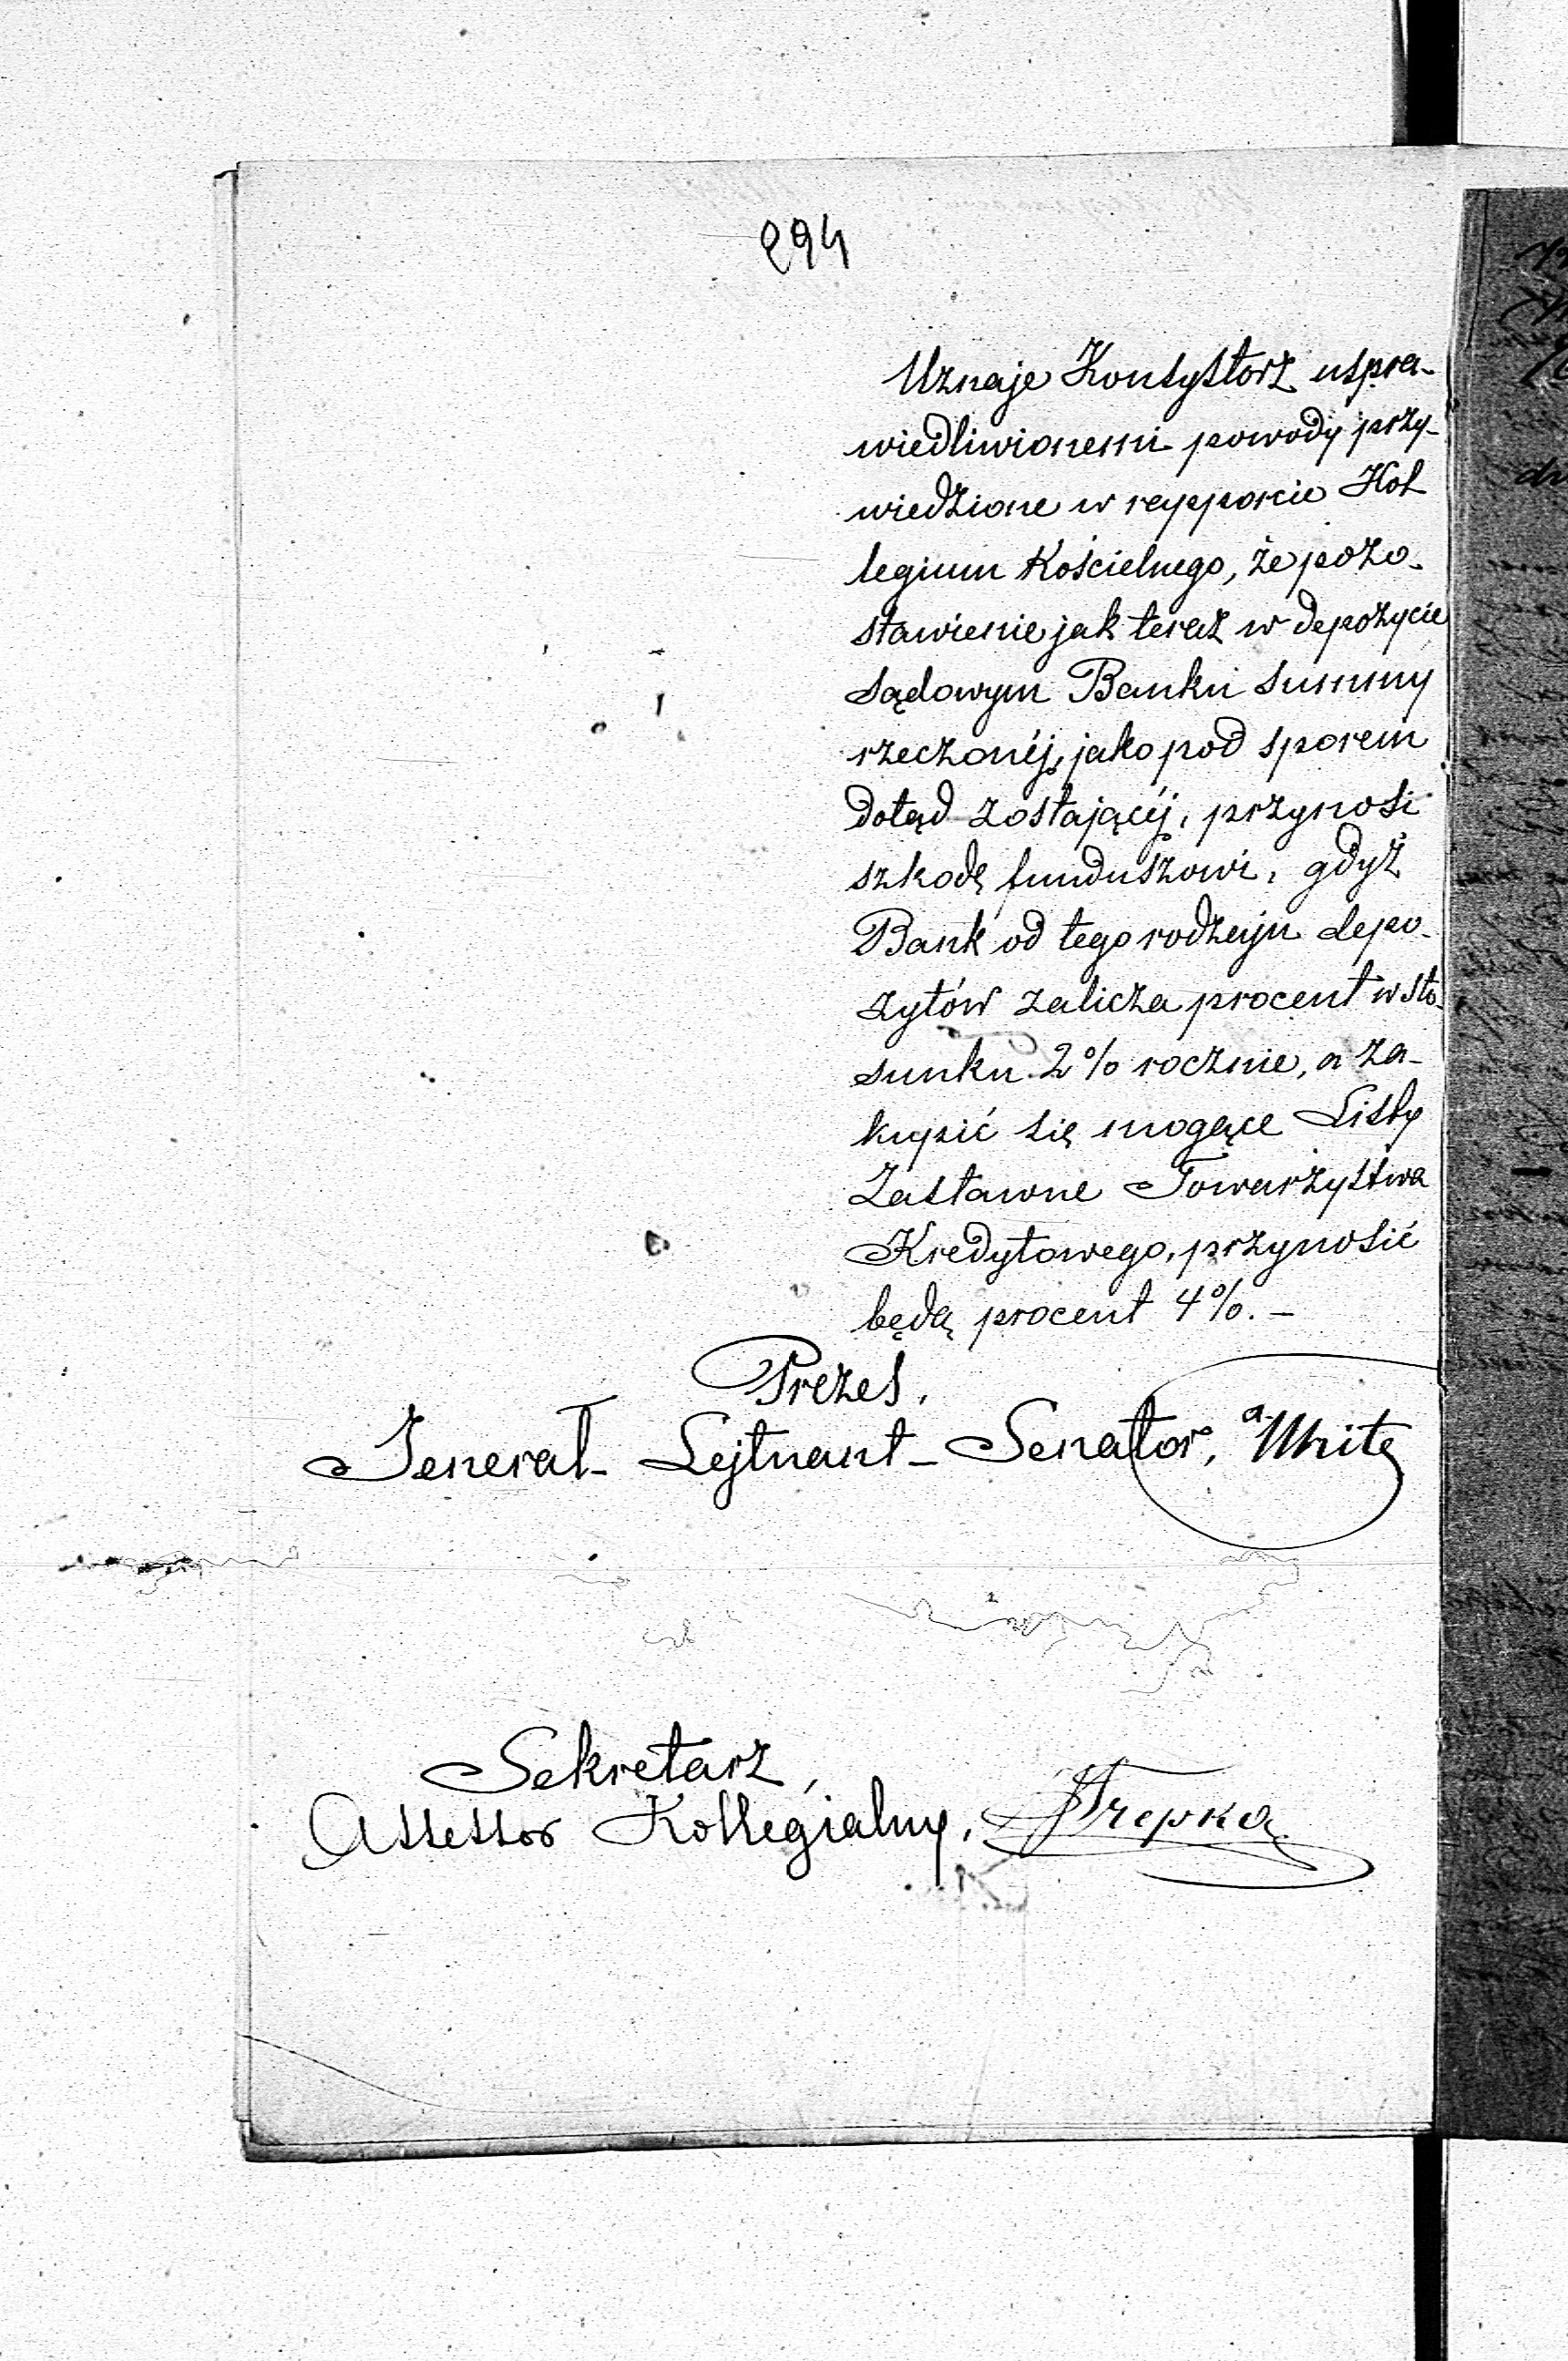 294
Uznaje Konsystorz uspra-
wiedliwionemi powody przy-
wiedzione w rapporcie Kol
legium Kościelnego, że pozo-
stawienie jak teraz w depozycie
sądowym Banku summy
rzeczonéj, jako pod sporem
dotąd zostającéj, przynosi
szkodę funduszowi, gdyż
Bank od tego rodzaju depo-
zytów zalicza procent w sto-
sunku 2% rocznie, a za-
kupić się mogące Listy
Zastawne Towarzystwa
Kredytowego, przynosić
będą procent 4%. -
Prezes,
Jenerał- Lejtnant- Senator,
Sekretarz,
Assessor Kollegialny, Trepka